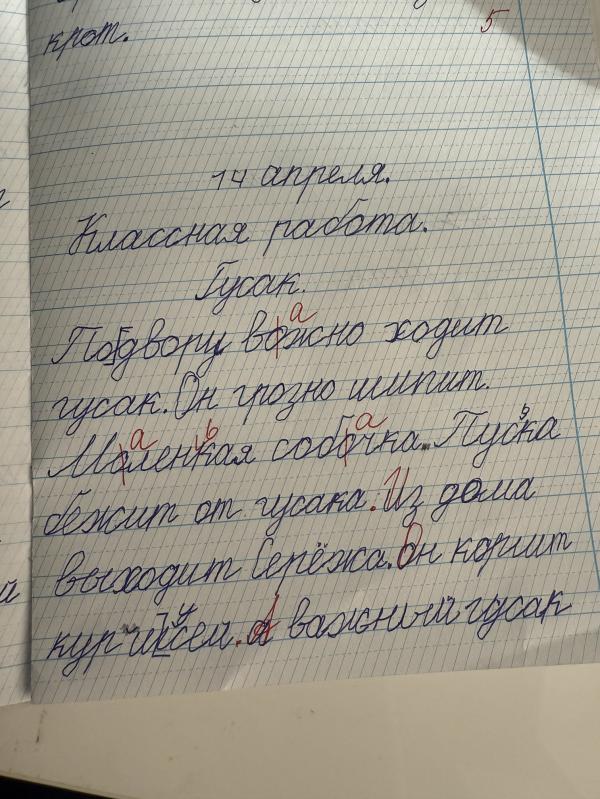 крот.
5
14 апреля.
Классная работа.
Гусак.
По двору вожно ходит
а
гусак. Он грозно шипит.
Моленкая собочка Пуска
а ь а ь
бежит от гусака. Из дома
выходит Серёжа. Он кормит
кур и гусей. А важный гусак